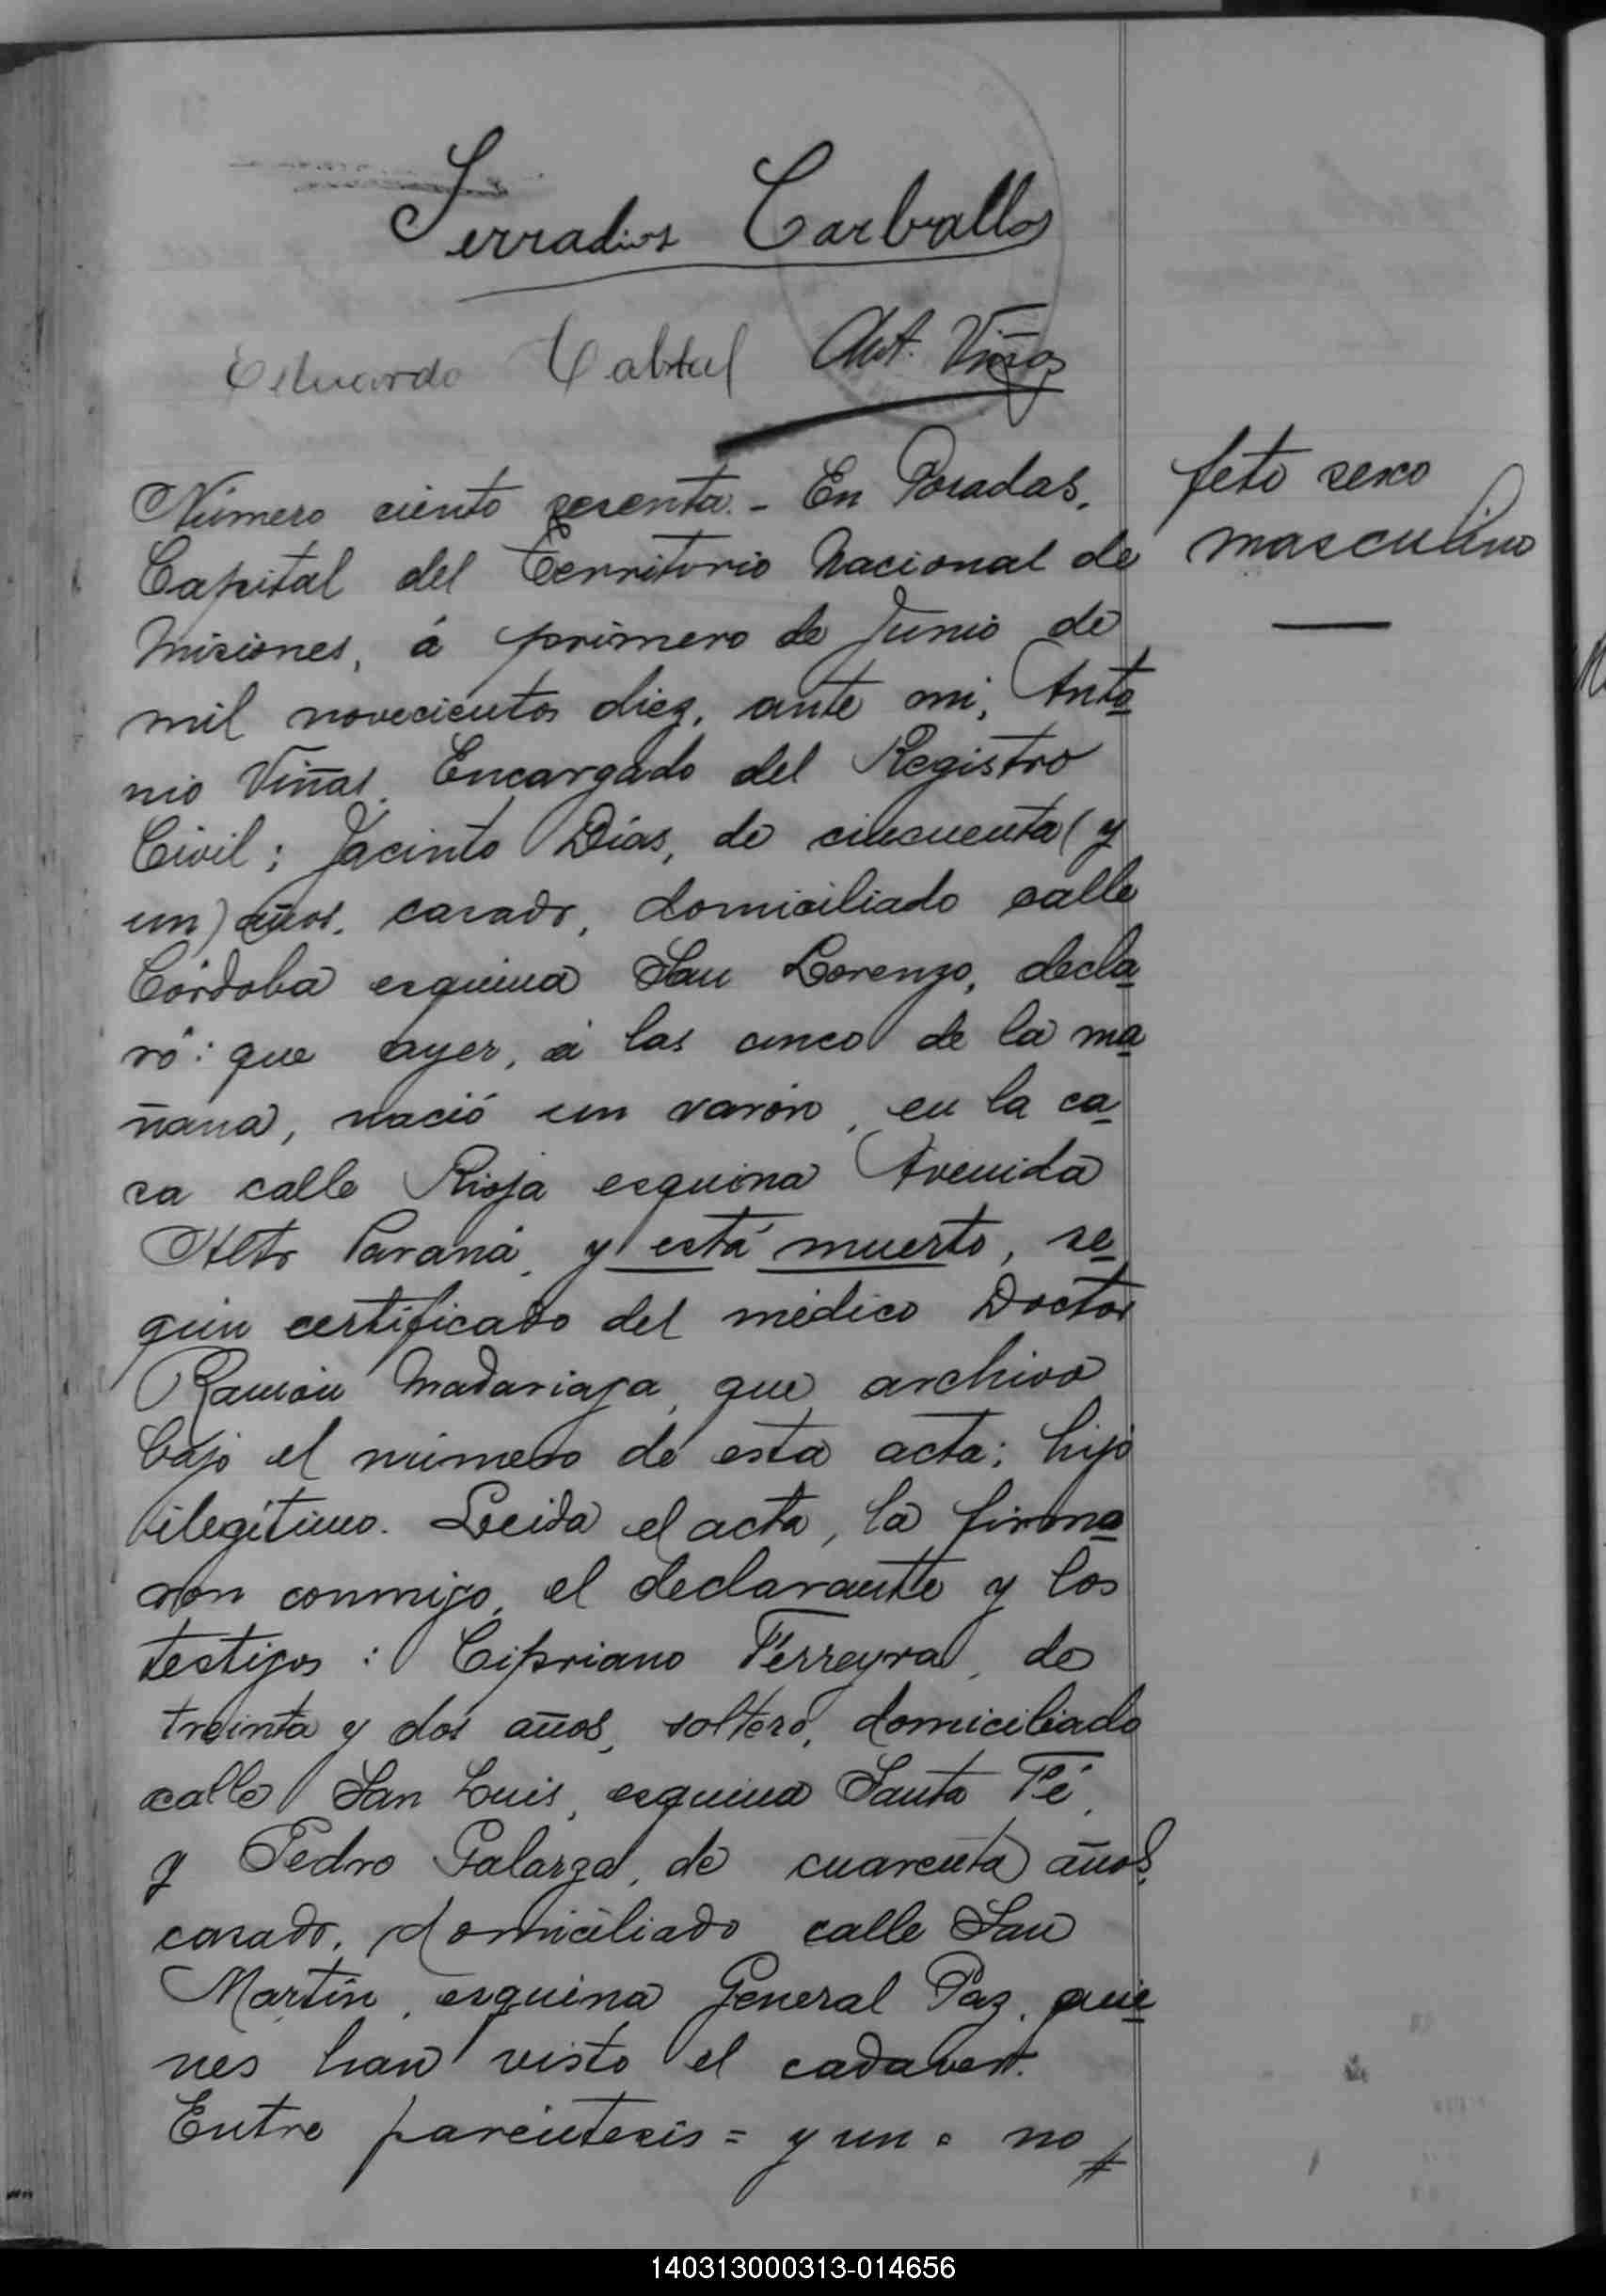 Serradios Carballo
Eduardo Cabral Ant. Viñas
feto sexo
masculino
Número ciento sesenta. - En Posadas,
Capital del Territorio Nacional de
Misiones, á primero de Junio de
mil novecientos diez, ante mi, Anto
nio Viñas, Encargado del Registro
Civil; Jacinto Días, de cincuenta (y
un) años, casado, domiciliado calle
Córdoba esquina San Lorenzo, decla
ró: que ayer, á las cinco de la ma
ñana, nació un varón, en la ca
sa calle Rioja esquina Avenida
Alto Paraná, y está muerto, se
gún certificado del médico Doctor
Ramón Madariaga, que archivo
bajo el número de esta acta; hijo
ilegítimo. Leida el acta, la firma
ron conmigo, el declarante y los
testigos: Cipriano Ferreyra, de
treinta y dos años, soltero, domiciliado
calle San Luis, esquina Santa Fé,
y Pedro Galarza, de cuarenta años,
casado, domiciliado calle San
Martín, esquina General Paz, quie
nes han visto el cadaver.
Entre paréntesis = y un = no
140313000313-014656